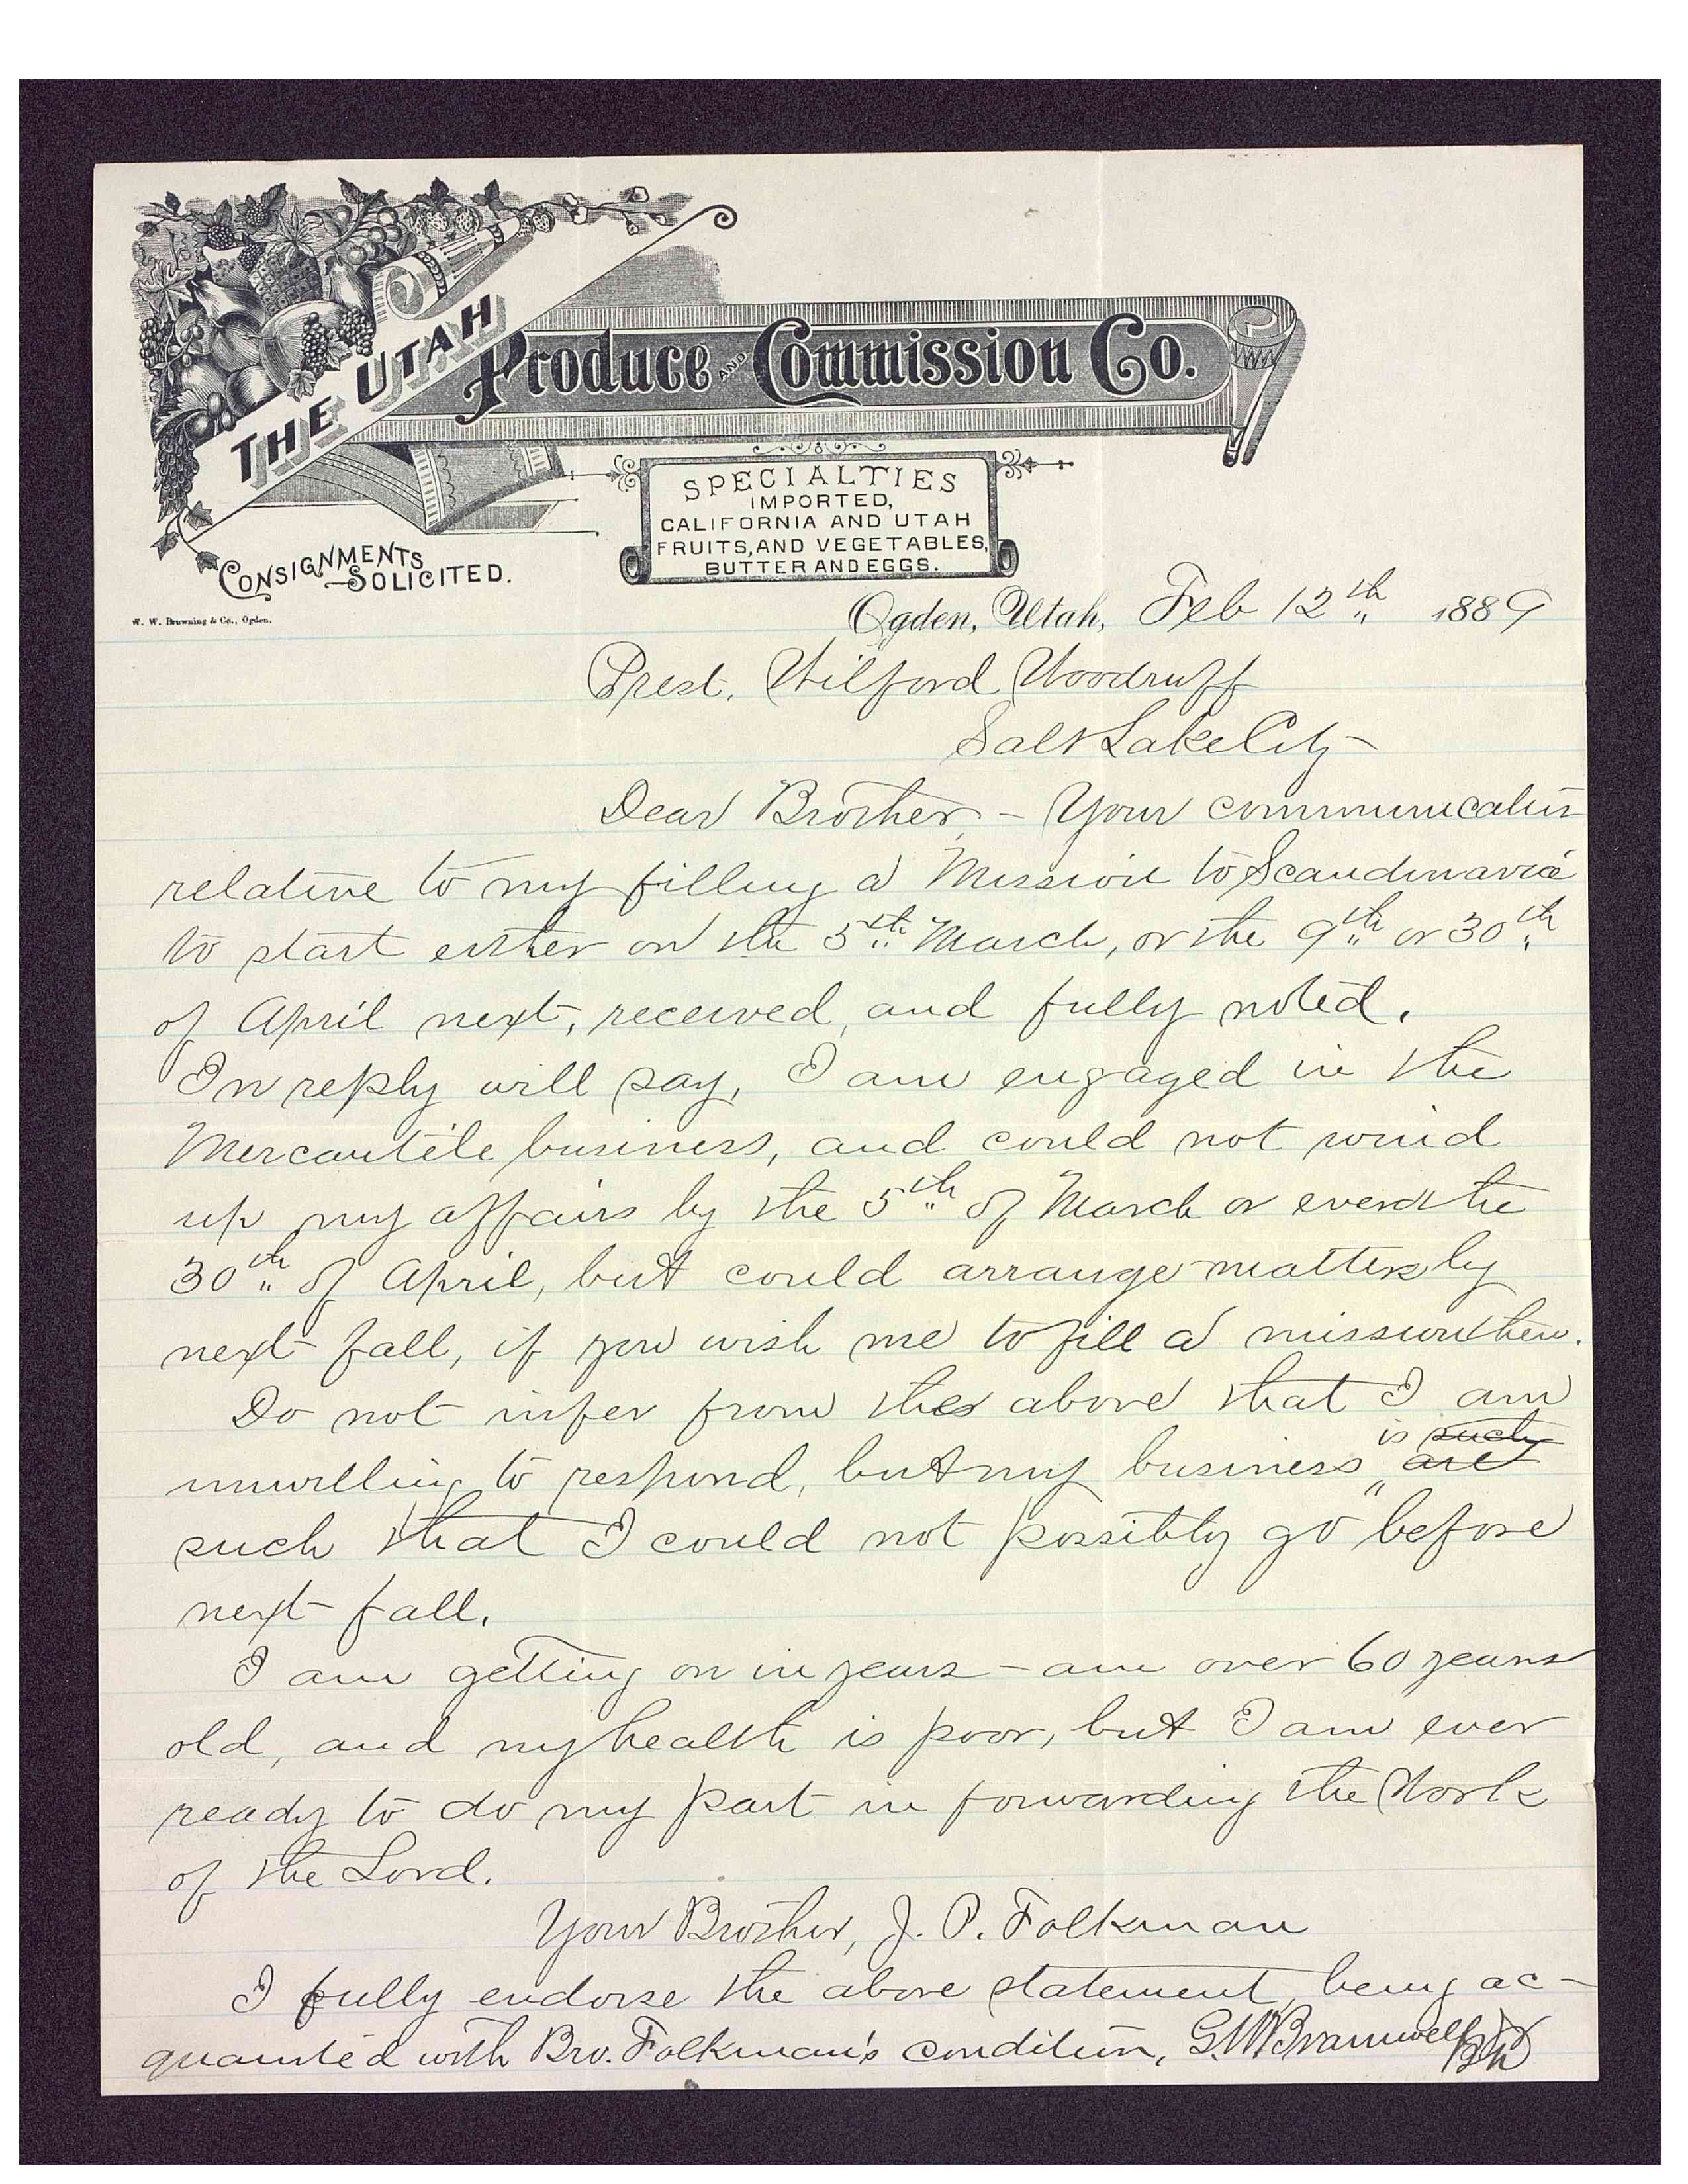 THE UTAH
Produce AND Commission Co.
SPECIALTIES
IMPORTED,
CALIFORNIA AND UTAH
FRUITS, AND VEGETABLES,
BUTTER AND EGGS.
CONSIGNMENTS
SOLICITED.
W. W. Browning & Co., Ogden.
Ogden, Utah, Feb 12th 1889
Prest. Wilford Woodruff
Salt Lake City
Dear Brother, - Your communication
relative to my filling a Mission to Scandinavia
to start either on the 5th March, or the 9th or 30th
of April next, received, and fully noted.
In reply will say, I am engaged in the
Mercantile business, and could not wind
up my affairs by the 5th of March or even the
30th of April, but could arrange matters by
next fall, if you wish me to fill a mission then.
Do not infer from the above that I am
is such
unwilling to respond, but my business are
such that I could not possibly go before
next fall.
I am getting on in years - am over 60 years
old, and my health is poor, but I am ever
ready to do my part in forwarding the Work
of the Lord.
Your Brother, J. P. Folkman
I fully endorse the above statement, being ac-
quainted with Bro. Folkman's condition, G. W. Bramwell